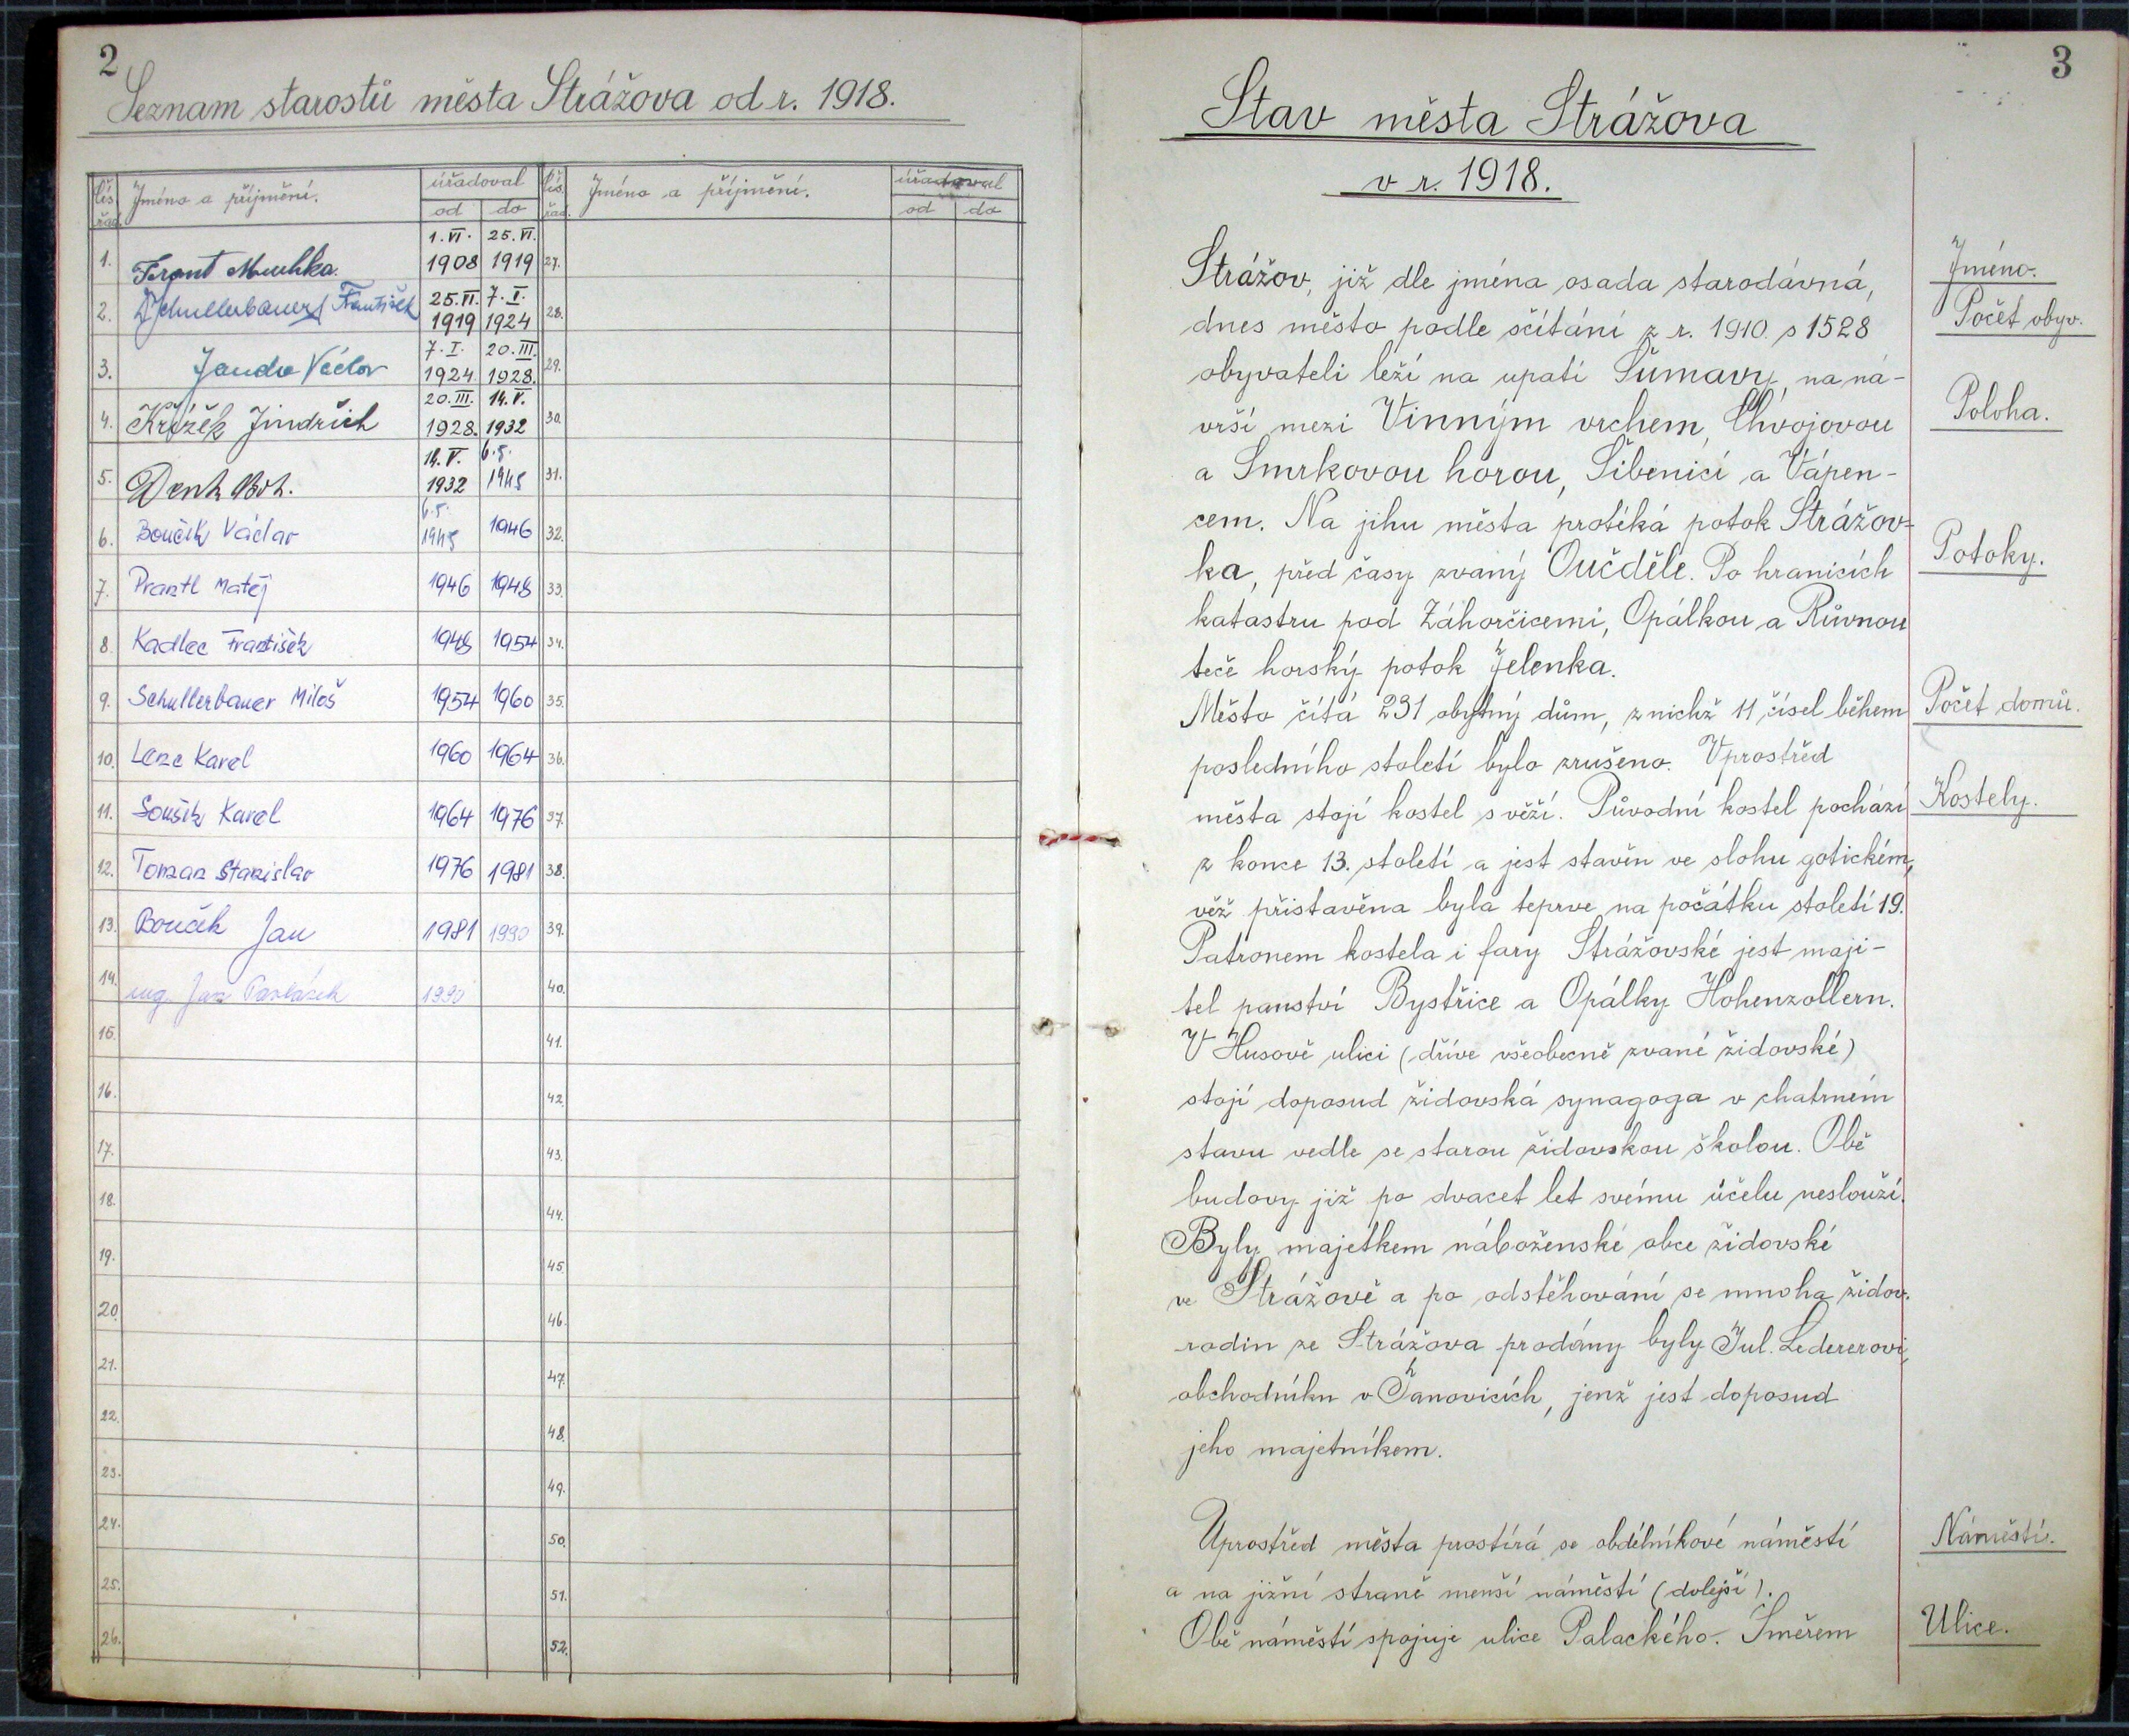 2
Seznam starostů města Strážova od r. 1918.
čís. řad. Jméno a příjmění. úřadoval od do čís. řad. Jméno a příjmění. úřadoval od do
1. 1.VI. 1908 25.VI. 1919 27.
2. Schullerbauer František 25.VI. 1919 7.I. 1924 28.
3. Janda Václav 7.I. 1924. 20.III. 1928. 29.
4. Křížek Jindřich 20.III. 1928. 14.V. 1932 30.
5. Denk 14.V. 1932 6.5. 1945 31.
6. Boučik Václav 6.5. 1945 1946 32.
7. Prantl Matěj 1946 1948 33.
8. Kadlec František 1948 1954 34.
9. Schullerbauer Miloš 1954 1960 35.
10. Karel 1960 1964 36.
11. Karel 1964 1976 37.
12. Toman Stanislav 1976 1981 38.
13. Bouček Jan 1981 1990 39.
14. ing. Jan 1990 40.
15. 41.
16. 42.
17. 43.
18. 44.
19. 45.
20. 46.
21. 47.
22. 48.
23. 49.
24. 50.
25. 51.
26. 52.
3
Stav města Strážova
v r. 1918.
Strážov, již dle jména osada starodávná,
Jméno.
dnes město podle sčítání z r. 1910. s 1528
Počet obyv.
obyvateli leží na upatí Šumavy, na ná-
vrší mezi Vinným vrchem, Chvojovou
Poloha.
a Smrkovou horou, Šibenicí a Vápen-
cem. Na jihu města protéká potok Strážov-
ka, před časy zvaný Oučděle. Po hranicích
Potoky.
katastru pod Záhorčicemi, Opálkou a Růvnou
teče horský potok Jelenka.
Město čítá 231 obytný dům, z nichž 11 čísel během
Počet domů.
posledního století bylo zrušeno. Vprostřed
města stojí kostel s věží. Původní kostel pochází
Kostely.
z konce 13. století a jest stavěn ve slohu gotickém,
věž přistavěna byla teprve na počátku století 19.
Patronem kostela i fary Strážovské jest maji-
tel panství Bystřice a Opálky Hohenzollern.
V Husově ulici (dříve všeobecně zvané židovské)
stojí doposud židovská synagoga v chatrném
stavu vedle se starou židovskou školou. Obě
budovy již po dvacet let svému účelu neslouží.
Byly majetkem náboženské obce židovské
ve Strážově a po odstěhování se mnoha židov.
rodin ze Strážova prodány byly Jul. Ledererovi,
obchodníku v Janovicích, jenž jest doposud
jeho majetníkem.
Uprostřed města prostírá se obdélníkové náměstí
Náměstí.
a na jižní straně menší náměstí (dolejší).
Obě náměstí spojuje ulice Palackého. Směrem
Ulice.